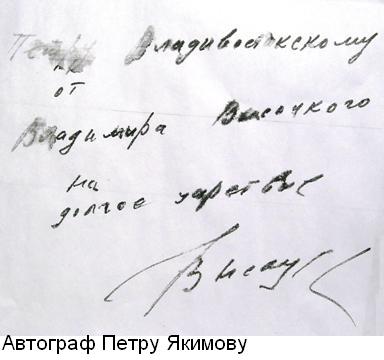 Петру Владивостокскому
от
Владимира Высоцкого
на
долгое царствие
Высоц
Автограф Петру Якимову